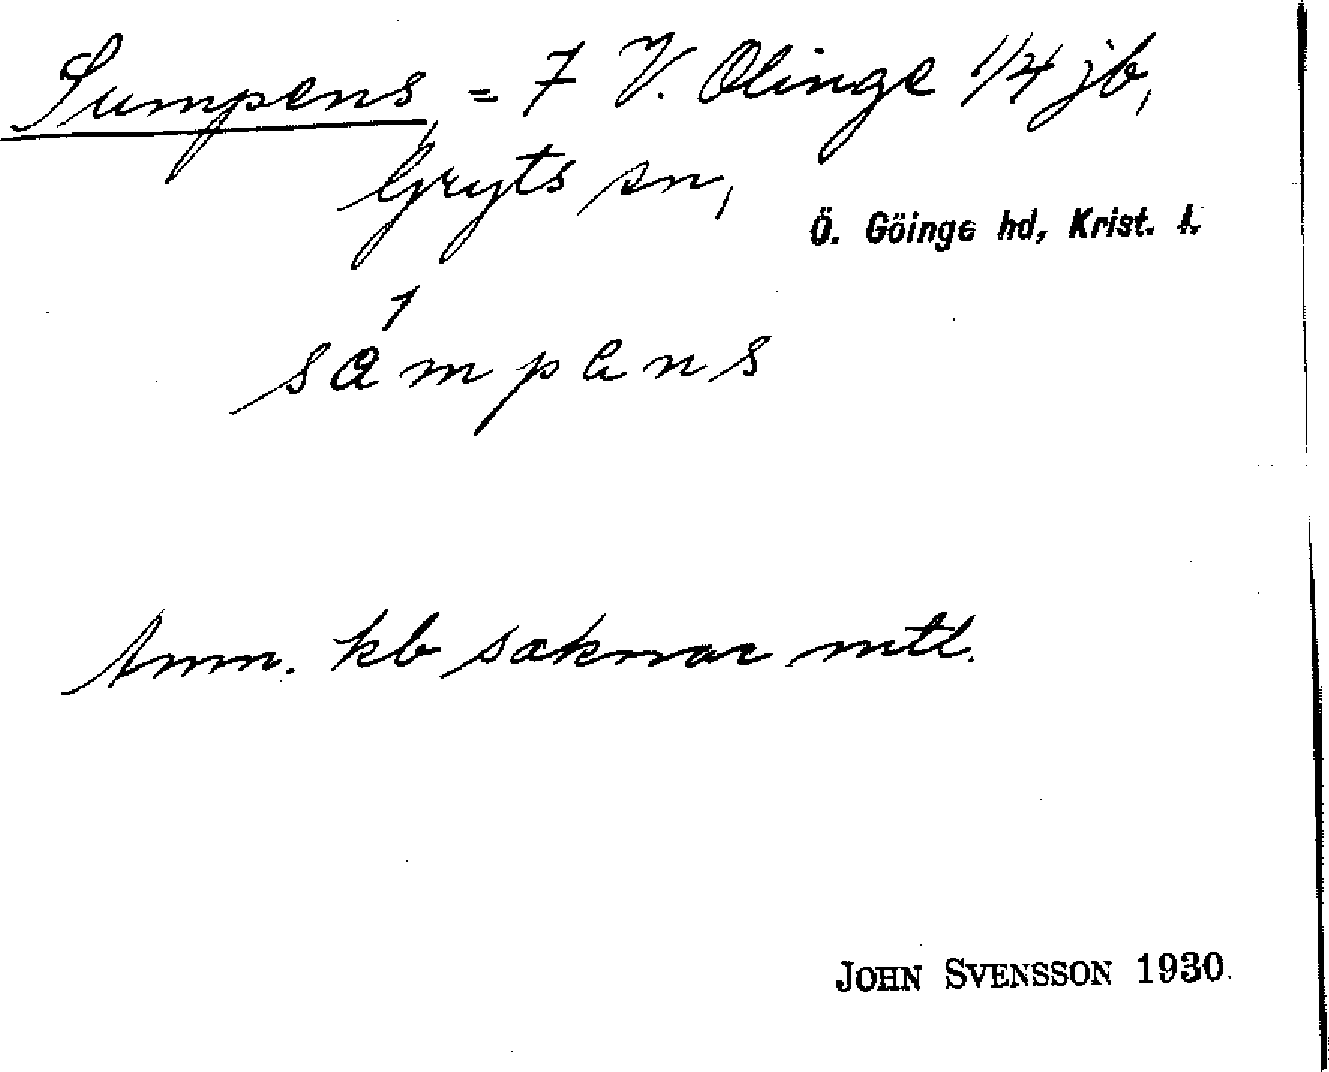 Sumpens = 7 V. Olinge 1/4 jb,
Gryts sn,
Ö. Göinge hd, Krist. l.
Anm. kb saknar mtl.
JOHN SVENSSON 1930.